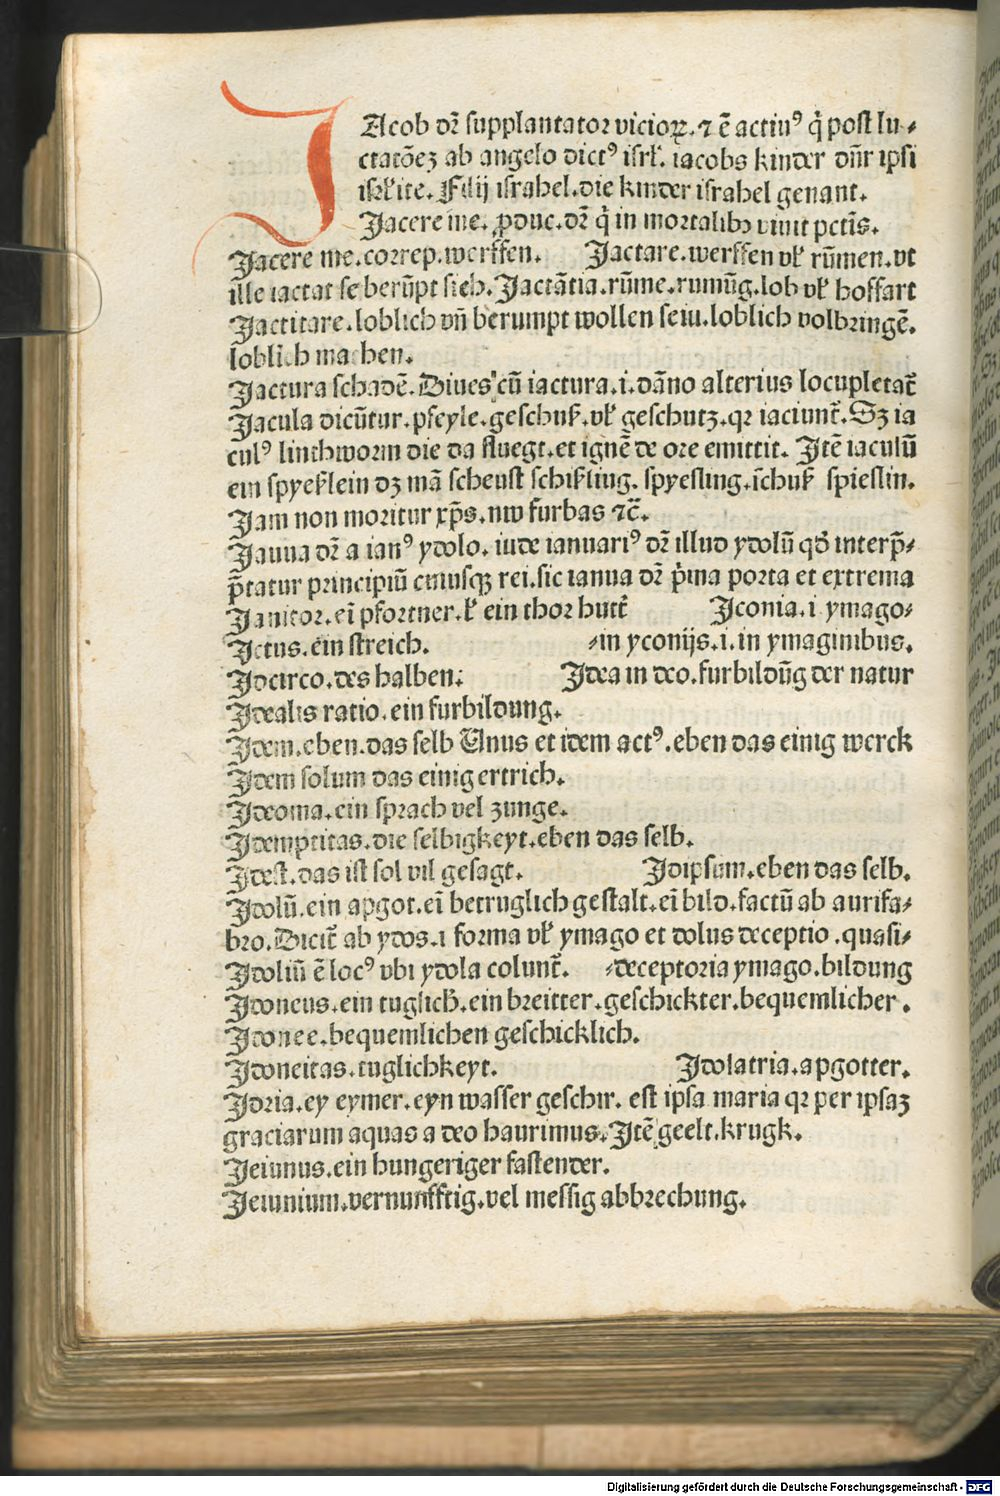 JAcob dr̄ supplantator vicioꝝ. ⁊ ē actiuꝰ q̇ post lu⸗
ctatōeꝫ ab angelo dictꝰ isrl̄. iacobs kinder dn̄r ipsi
isrl̄ite. Filij israhel.die kinder israhel genant.
Jacere me. ꝓduc.dr̄ q̇ in mortalibꝰ viuit pctīs.
Jacere me.correp.werffen. Jactare.werffen vl̄ rūmen.vt
ille iactat se berūpt sich. Jactātia.rūme.rumūg.lob vl̄ hoffart
Jactitare.loblich vn̄ berumpt wollen sein.loblich volbringē.
loblich machen.
Jactura schadē. Diues cū iactura.i.dāno alterius locupletat̄
Jacula dicūtur.pfeyle.geschuß.vl̄ geschutz.qꝛ iaciunt̄. Sꝫ ia
culꝰ linthworm die da fluegt.et ignē de ore emittit. Jtē iaculū
ein spyeßlein dꝫ mā scheust schißling. spyesling.schuß spieslin.
Jam non moritur xp̄s.nw furbas ⁊c̄.
Janua dr̄ a ianꝰ ydolo. inde ianuariꝰ dr̄ illud ydolū qd̄ interp̄⸗
p̄tatur principiū cuiusqꝫ rei.sic ianua dr̄ p̄ma porta et extrema
Janitor.eī pfortner.ł ein thor hutt̄ Jconia.i ymago⸗
Jctus.ein streich. ⸗in yconijs.i.in ymaginibus.
Jdcirco.des halben. Jdea in deo.furbildūg der natur
Jdealis ratio.ein furbildung.
Jdem.eben.das selb Unus et idem actꝰ.eben das einig werck
Jdem solum das einig ertrich.
Jdeoma.ein sprach vel zunge.
Jdemptitas.die selbigkeyt.eben das selb.
Jdest.das ist sol vil gesagt. Jdipsum.eben das selb.
Jdolū.ein apgot.eī betruglich gestalt.eī bild.factū ab aurifa⸗
bro.Dicit̄ ab ydos.i forma vl̄ ymago et dolus deceptio .quasi⸗
Jdoliū ē locꝰ vbi ydola colunt̄. ⸗deceptoria ymago.bildung
Jdoneus.ein tuglich̄.ein breitter.geschickter.bequemlicher.
Jdonee.bequemlichen geschicklich.
Jdoneitas.tuglichkeyt. Jdolatria.apgotter.
Jdria.ey eymer.eyn wasser geschir. est ipsa maria qꝛ per ipsaꝫ
graciarum aquas a deo haurimus. Jtē geelt.krugk.
Jeiunus.ein hungeriger fastender.
Jeiunium.vernunfftig.vel messig abbrechung.
Digitalisierung gefördert durch die Deutsche Forschungsgemeinschaft - DFG